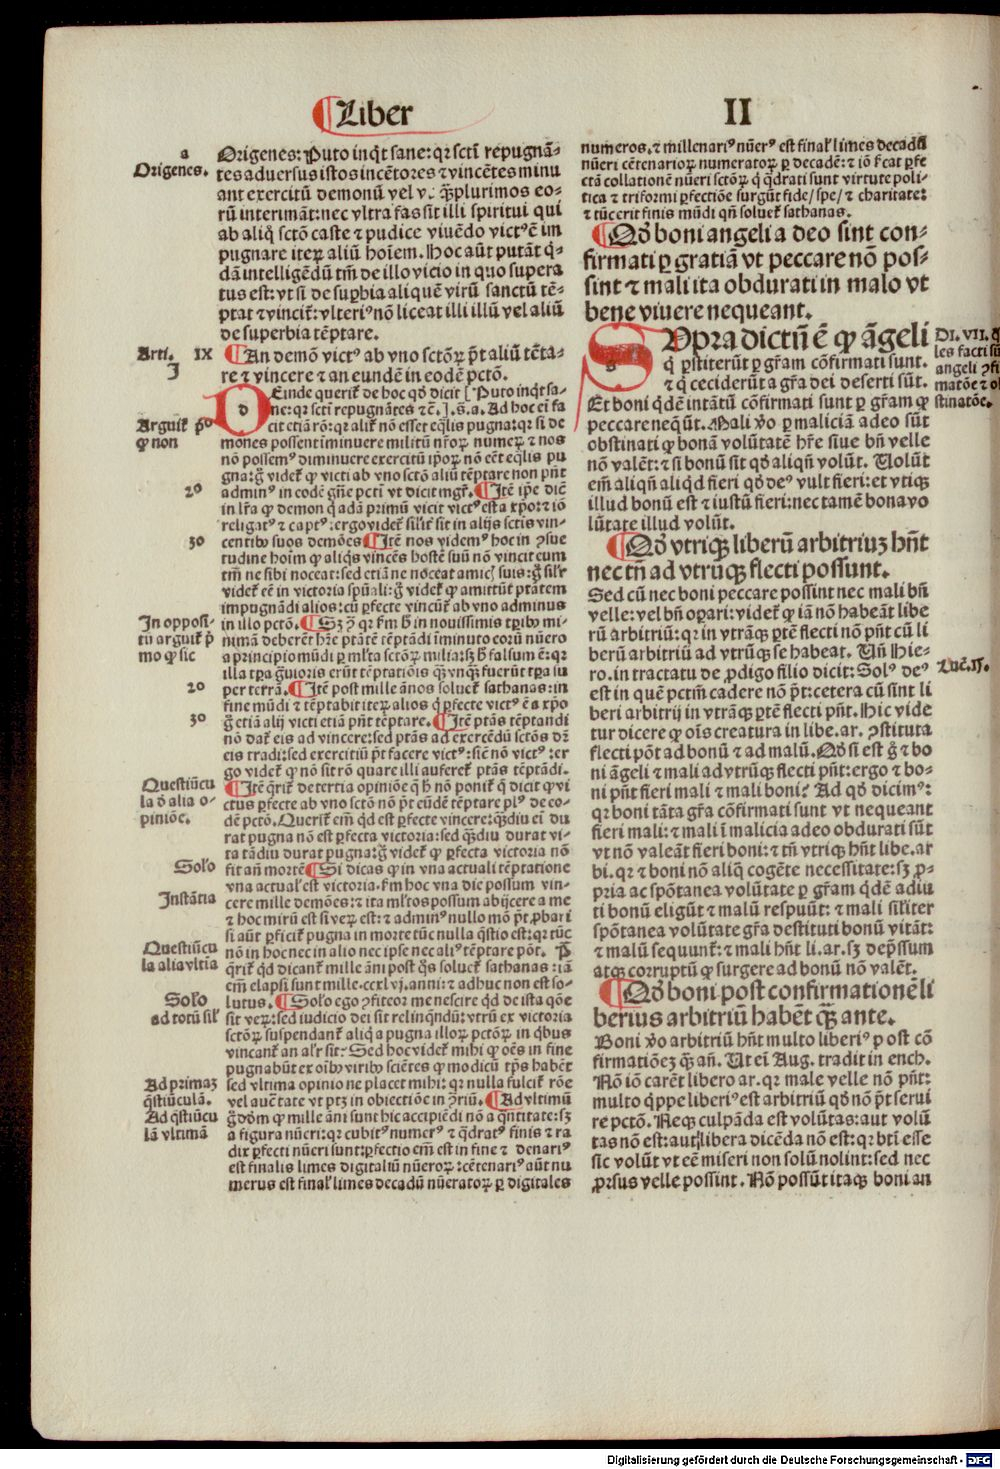 Liber
II
a
Origenes.
Origenes: Puto inq̃t sane: qꝛ sctī repugnā-
tes aduersus istos incētores ⁊ vincētes minu
ant exercitū demonū vel qͣꝫplurimos eo-
rū interimāt: nec vltra fas sit illi spiritui qui
ab aliqͦ sctō caste ⁊ pudice viuēdo victꝰ ē im
pugnare iteꝝ aliū hoīem. Hoc aūt putāt q̄-
dā intelligēdū tm̄ de illo vicio in quo supera
tus est: vt si de supbia aliquē virū sanctū tē-
ptat ⁊ vincit᷑: vlteriꝰ nō liceat illi illū vel aliū
de superbia tēptare.
Arti. IX
J
¶ An demō victꝰ ab vno sctōꝝ p̄t aliū tēta-
re ⁊ vincere ⁊ an eundē in eodē pctō.
Deinde querit᷑ de hoc qd̓ dicit [Puto inq̃t sa-
ne: qꝛ sctī repugnātes ⁊cē.] .s.a. Ad hoc eī fa
Arguit᷑ pͦ
ꝙ non
cit etiā rō: qꝛ alit᷑ nō esset eq̄lis pugna: qꝛ si de
mones possent iminuere militū nr̄oꝝ numeꝝ ⁊ nos
nō possemꝰ diminuere exercitū ip̄oꝝ nō cēt eq̄lis pu
gna: g̊ videt᷑ ꝙ victi ab vno sctō aliū tēptare non pn̄t
2º
adminꝰ in eodē gn̄e pctī vt dicit mgr̄. ¶ Itē ip̄e dic̄
in lr̄a ꝙ demon q̄ adā primū vicit victꝰ est a xp̄o: ⁊ iō
religatꝰ ⁊ captꝰ: ergo videt᷑ silr̄ sit in alijs sctīs vin-
3º
centibꝰ suos demōes ¶ Itē nos videmꝰ hoc in ꝯsue
tudine hoīm ꝙ aliq̄s vincēs hostē suū nō vincit eum
tm̄ ne sibi noceat: sed etiā ne noceat amicꝭ suis: g̊ silr̄
videt᷑ eē in victoria spūali: g̊ videt᷑ ꝙ amittūt ptātem
impugnādi alios: cū ꝑfecte vincūt᷑ ab vno adminus
In opposi-
tū arguit᷑ p̄
mo ꝙ sic
in illo pctō. ¶ Sꝫ ꝯͣ qꝛ fm̄ h̄ in nouissimis tꝑibꝰ mi-
nimā deberēt hr̄e ptātē tēptādi īminuto eoꝝ nūero
a principio mūdi ꝑ ml̄ta sctōꝝ milia: sꝫ h̄ falsum ē: qꝛ
illa tꝑa g̊uioris erūt tēptatiōis qͣꝫ vnqͣꝫ fuerūt tꝑa su
2º
per terrā. ¶ Itē post mille ānos soluet᷑ sathanas: in
fine mūdi ⁊ tēptabit iteꝝ alios q̄ ꝑfecte victꝰ ē a xp̄o
3º
g̊ etiā alij victi etiā pn̄t tēptare. ¶ Itē ptās tēptandi
nō dat᷑ eis ad vincere: sed ptās ad exercēdū sctōs dr̄
eis tradi: sed exercitiū p̄t facere victꝰ: sic̄ nō victꝰ: er
go videt᷑ ꝙ nō sit rō quare illi auferet᷑ ptās tēptādi.
Questiūcu
la d̓ alia o-
pinióe.
¶ Itē q̄rit᷑ de tertia opinióe q̄ h̄ nō ponit᷑ q̄ dicit ꝙ vi
ctus ꝑfecte ab vno sctō nō p̄t eūdē tēptare plꝰ de eo-
dē pctō. Querit᷑ em̄ qd̓ est ꝑfecte vincere: qͣꝫdiu eī du
rat pugna nō est ꝑfecta victoria: sed qͣꝫdiu durat vi-
ta tādiu durat pugna: g̊ videt᷑ ꝙ ꝑfecta victoria nō
Solo
fit añ mortē ¶ Si dicas ꝙ in vna actuali tēptatione
vna actualꝭ est victoria. fm̄ hoc vna die possum vin-
Instātia
cere mille demōes: ⁊ ita ml̄tos possum abijcere a me
⁊ hoc mirū est si veꝝ est: ⁊ adminꝰ nullo mō p̄t ꝓbari
si aūt ꝑficit᷑ pugna in morte tūc nulla q̄stio est: qꝛ tūc
Questiūcu
la alia vltīa
nō in hoc nec in alio nec ip̄se nec aliꝰ tēptare pōt. P̄
q̄rit᷑ qd̓ dicant᷑ mille āni post q̄s soluet᷑ sathanas: iā
em̄ elapsi sunt mille.ccxlvj.anni: ⁊ adhuc non est so-
Solo
ad totū silꝭ
lutus. ¶ Solo ego ꝯfiteor me nescire qd̓ de ista qōe
sit veꝝ: sed iudicio dei sit relinq̄ndū: vtrū ex victoria
sctōꝝ suspendant᷑ aliq̄ a pugna illoꝝ pctōꝝ in q̄bus
vincant᷑ an alr̄ sit: Sed hoc videt᷑ mihi ꝙ oēs in fine
pugnabūt ex oībꝰ viribꝰ sciētes ꝙ modicū tp̄s habēt
Ad primaꝫ
q̄stiūculā.
sed vltima opinio ne placet mihi: qꝛ nulla fulcit᷑ rōe
vel auētate vt ptꝫ in obiectióe in ꝯriū. ¶ Ad vltimū
Ad q̄stiūcu
lā vltimā
g̊ dōm ꝙ mille āni sunt hic accipiēdi nō a qn̄titate: sꝫ
a figura nūeri: qꝛ cubitꝰ numerꝰ ⁊ q̄dratꝰ finis ⁊ ra
dix ꝑfecti nūeri sunt: ꝑfectio em̄ est in fine ⁊ denariꝰ
est finalis limes digitaliū nūeroꝝ: cētenariꝰ aūt nu
merus est finalꝭ limes decadū nūeratoꝝ ꝑ digitales
numeros, ⁊ millenariꝰ nūerꝰ est finalꝭ limes decadū
nūeri cētenarioꝝ numeratoꝝ ꝑ decadē: ⁊ iō fīcat ꝑfe
ctā collationē nūeri sctōꝝ q̄ q̄drati sunt virtute poli-
tica ⁊ triformi ꝑfectióe surgūt fide/ spe/ ⁊ charitate:
⁊ tūc erit finis mūdi qn̄ soluet᷑ sathanas.
¶ Qd̓ boni angeli a deo sint con-
firmati ꝑ gratiā vt peccare nō pos-
sint ⁊ mali ita obdurati in malo vt
bene viuere nequeant.
Di. VII. q̄
les facti sū
angeli ꝯfi
matōe ⁊ ob
stinatōe.
Supra dictū ē ꝙ āgeli
q̄ ꝑstiterūt ꝑ gr̄am cōfirmati sunt.
⁊ q̄ ceciderūt a gr̄a dei deserti sūt.
Et boni q̄dē intātū cōfirmati sunt ꝑ gr̄am ꝙ
peccare neq̄ūt. Mali v̓o ꝑ maliciā adeo sūt
obstinati ꝙ bonā volūtatē hr̄e siue bn̄ velle
nō valēt: ⁊ si bonū sit qd̓ aliqn̄ volūt. Volūt
em̄ aliqn̄ aliqd̓ fieri qd̓ deꝰ vult fieri: et vtiqꝫ
illud bonū est ⁊ iustū fieri: nec tamē bona vo
lūtate illud volūt.
¶ Qd̓ vtriqꝫ liberū arbitriuꝫ hn̄t
nec tn̄ ad vtrūqꝫ flecti possunt.
Sed cū nec boni peccare possint nec mali bn̄
velle: vel bn̄ oꝑari: videt᷑ ꝙ iā nō habeāt libe
rū arbitriū: qꝛ in vtrāqꝫ ꝑtē flecti nō pn̄t cū li
berū arbitriū ad vtrūqꝫ se habeat. Un̄ Hie-
Luc̄.15.
ro. in tractatu de ꝓdigo filio dicit: Solꝰ deꝰ
est in quē pctm̄ cadere nō p̄t: cetera cū sint li
beri arbitrij in vtrāqꝫ ꝑtē flecti pn̄t. Hic vide
tur dicere ꝙ oīs creatura in libe. ar. ꝯstituta
flecti pōt ad bonū ⁊ ad malū. Qd̓ si est g̊ ⁊ bo
ni āgeli ⁊ mali ad vtrūqꝫ flecti pn̄t: ergo ⁊ bo-
ni pn̄t fieri mali ⁊ mali boni? Ad qd̓ dicimꝰ:
qꝛ boni tāta gr̄a cōfirmati sunt vt nequeant
fieri mali: ⁊ mali ī malicia adeo obdurati sūt
vt nō valeāt fieri boni: ⁊ tn̄ vtriqꝫ hn̄t libe. ar
bi. qꝛ ⁊ boni nō aliq̄ cogēte necessitate: sꝫ ꝓ-
pria ac spōtanea volūtate ꝑ gr̄am q̄dē adiu
ti bonū eligūt ⁊ malū respuūt: ⁊ mali silr̄iter
spōtanea volūtate gr̄a destituti bonū vitāt:
⁊ malū sequunt᷑: ⁊ mali hn̄t li. ar. sꝫ dep̄ssum
atqꝫ corruptū ꝙ surgere ad bonū nō valēt.
¶ Qd̓ boni post confirmationē li
berius arbitriū habēt qͣꝫ ante.
Boni v̓o arbitriū hn̄t multo liberiꝰ post cō
firmatiōeꝫ qͣꝫ añ. Ut eī Aug. tradit in ench.
Nō iō carēt libero ar. qꝛ male velle nō pn̄t:
multo q̄ppe liberiꝰ est arbitriū qd̓ nō p̄t serui
re pctō. Neqꝫ culpāda est volūtas: aut volū
tas nō est: aut libera dicēda nō est: qꝛ btī esse
sic volūt vt eē miseri non solū nolint: sed nec
ꝓrsus velle possint. Nō possūt itaqꝫ boni an
Digitalisierung gefördert durch die Deutsche Forschungsgemeinschaft - DFG